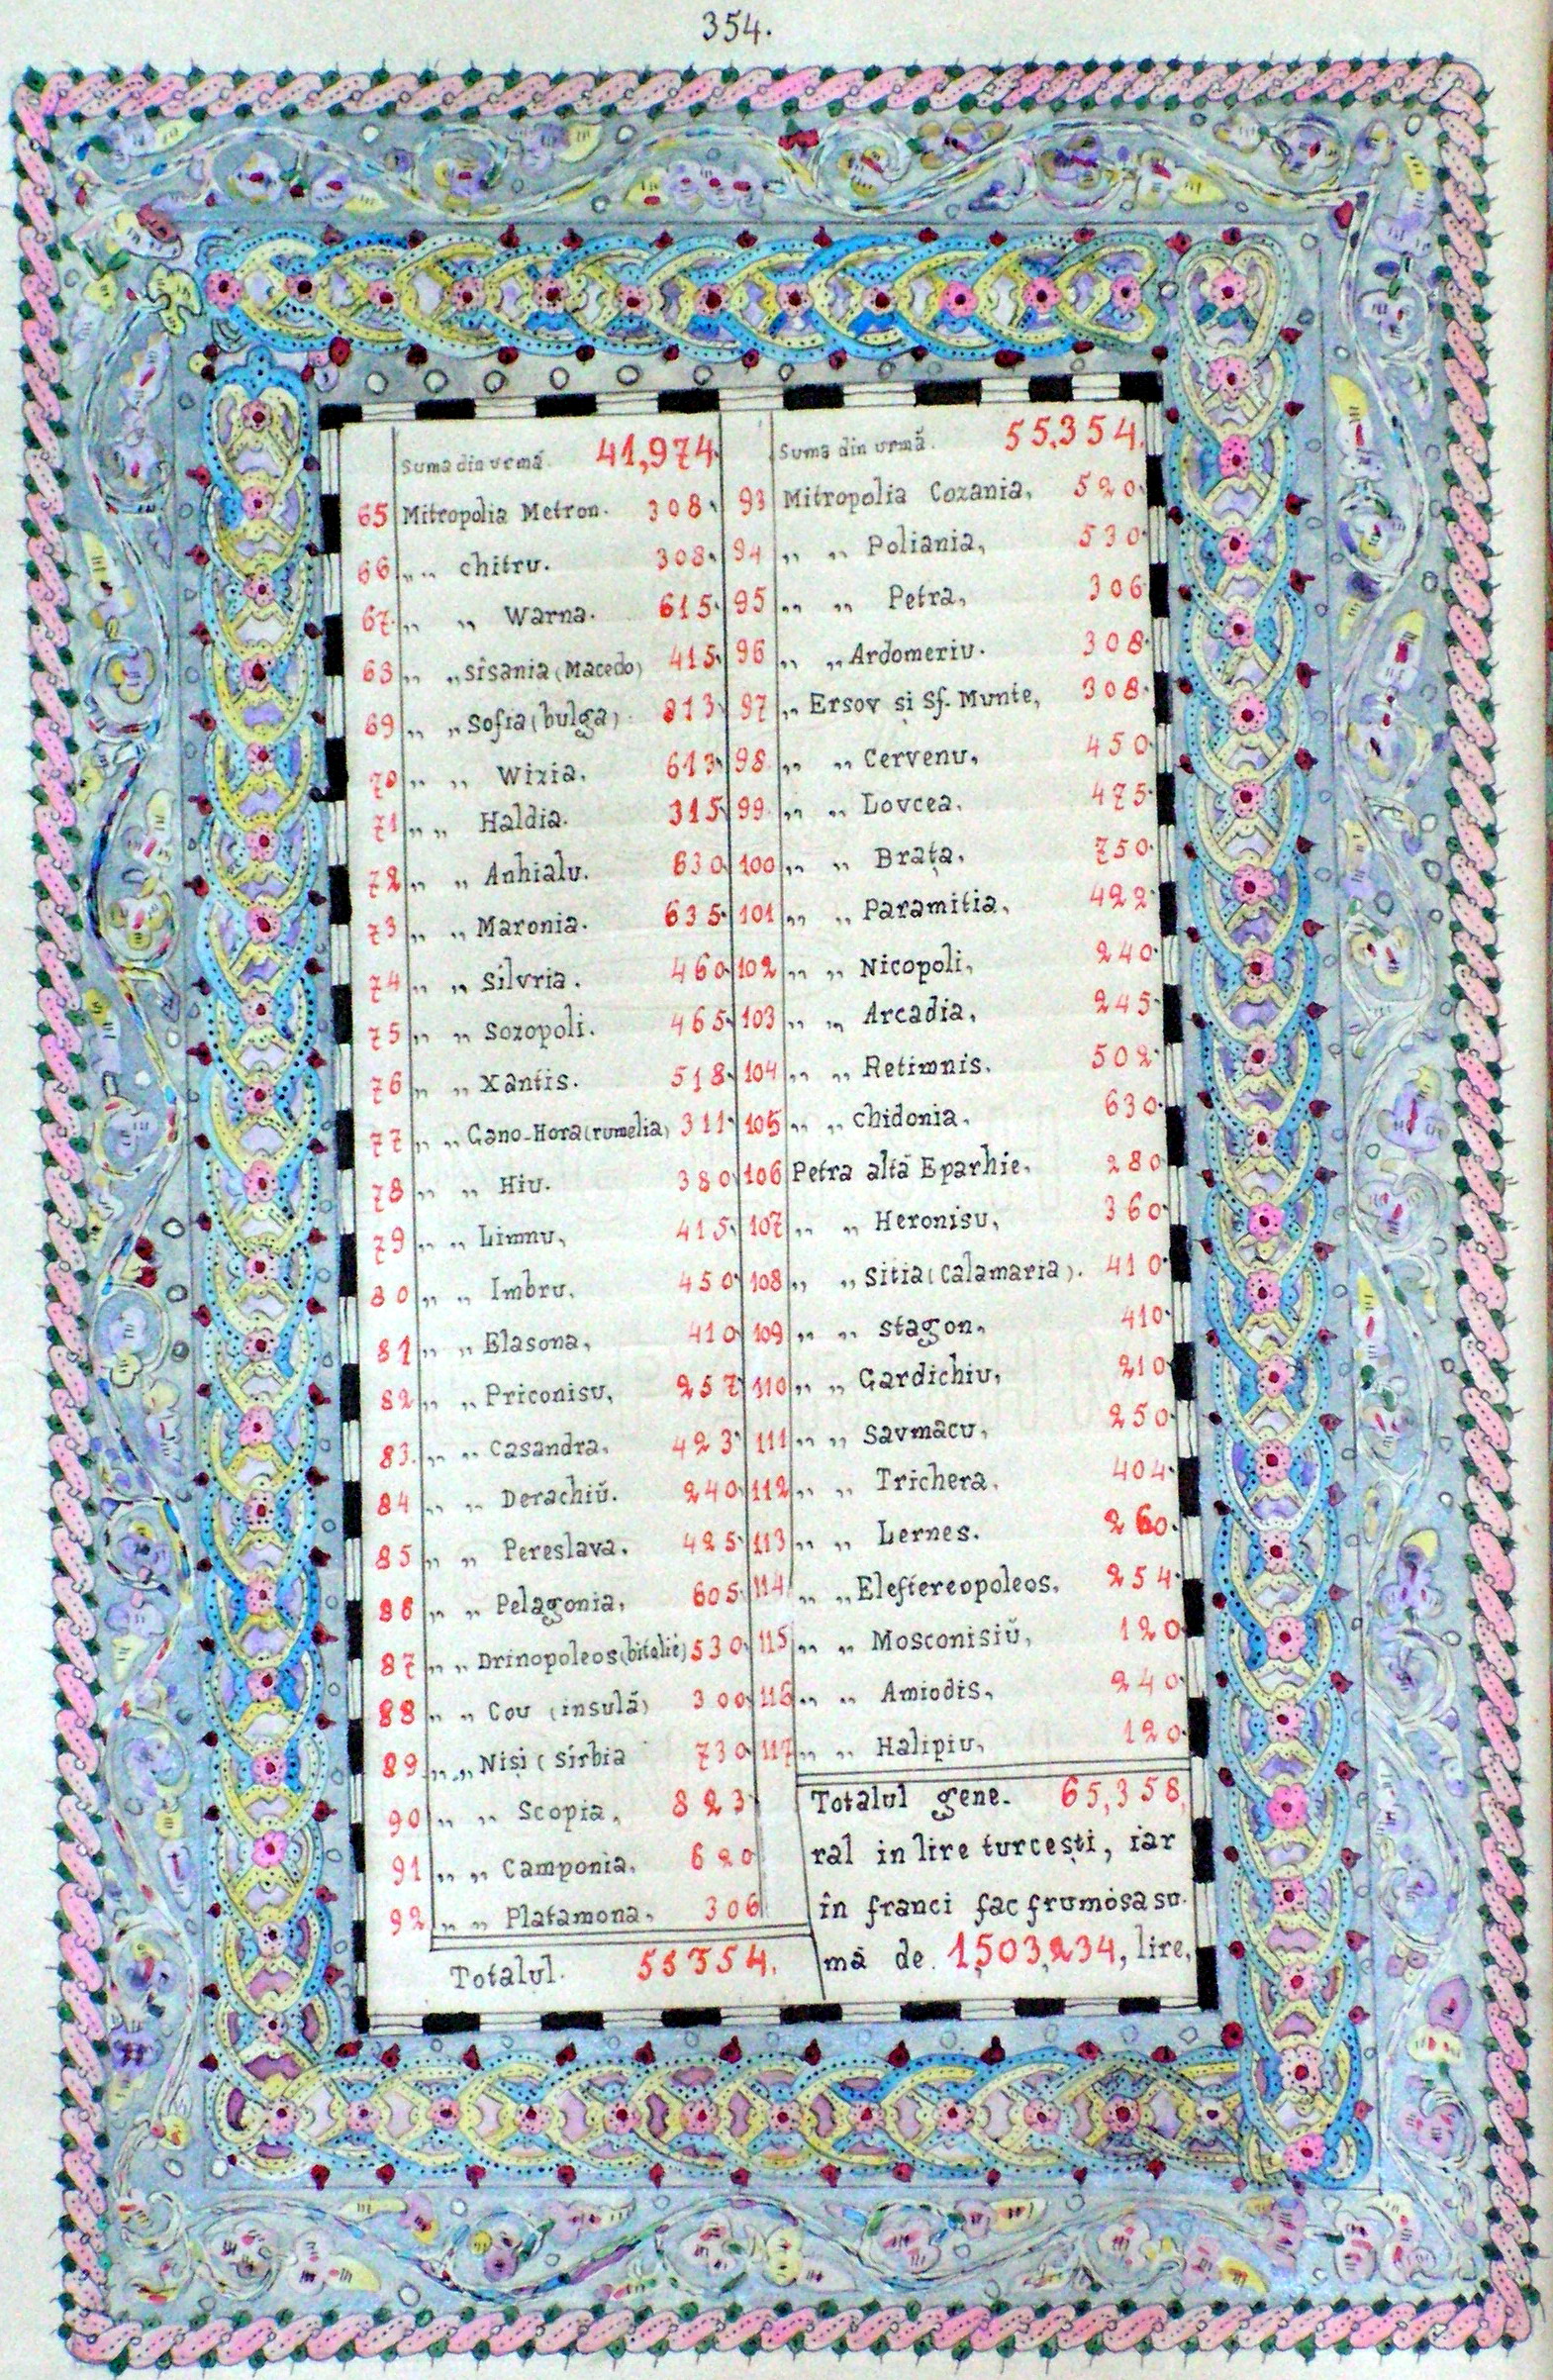 354.
Suma din urmă. 41,974.
65 Mitropolia Metron. 308.
66 „ „ chitru. 308.
67. „ „ Warna. 615.
68 „ „ Sisania (Macedo) 415.
69 „ „ Sofia (bulga) 813.
70 „ „ Wizia. 613.
71 „ „ Haldia. 315.
72 „ „ Anhialu. 630.
73 „ „ Maronia. 635.
74 „ „ Silvria. 460.
75 „ „ Sozopoli. 465.
76 „ „ Xantis. 518.
77 „ „ Gano-Hora (rumelia) 311.
78 „ „ Hiu. 380.
79 „ „ Limnu, 415.
80 „ „ Imbru, 450.
81 „ „ Elasona, 410.
82 „ „ Priconisu, 257.
83. „ „ Casandra, 423.
84 „ „ Derachiŭ. 240.
85 „ „ Pereslava. 425.
86 „ „ Pelagonia, 605.
87 „ „ Drinopoleos (bitolie) 530.
88 „ „ Cou (insulă) 300.
89 „ „ Niși (Sirbia 730.
90 „ „ Scopia, 823.
91 „ „ Camponia, 620
92 „ „ Platamona, 306
Totalul. 55354.
Suma din urmă. 55,354.
93 Mitropolia Cozania, 520.
94 „ „ Poliania, 530.
95 „ „ Petra, 306
96 „ „ Ardomeriu. 308.
97 „ Ersov și Sf. Munte, 308.
98. „ „ Cervenu, 450.
99. „ „ Lovcea, 475.
100 „ „ Brața, 750.
101 „ „ Paramitia, 422.
102 „ „ Nicopoli, 240.
103 „ „ Arcadia, 245.
104 „ „ Retimnis. 502.
105 „ „ chidonia, 630.
106 Petra altă Eparhie, 280.
107 „ „ Heronisu, 360.
108 „ „ Sitia (Calamaria). 410.
109 „ „ Stagon, 410.
110 „ „ Gardichiu, 210.
111 „ „ Savmacu, 250.
112 „ „ Trichera, 404.
113 „ „ Lernes. 260.
114 „ „ Eleftereopoleos, 254.
115 „ „ Mosconisiŭ, 120.
116 „ „ Amiodis, 240.
117 „ „ Halipiu, 120.
Totalul gene- 65,358,
ral in lire turcești, iar
în franci fac frumósa su-
mă de. 1,503,234, lire,